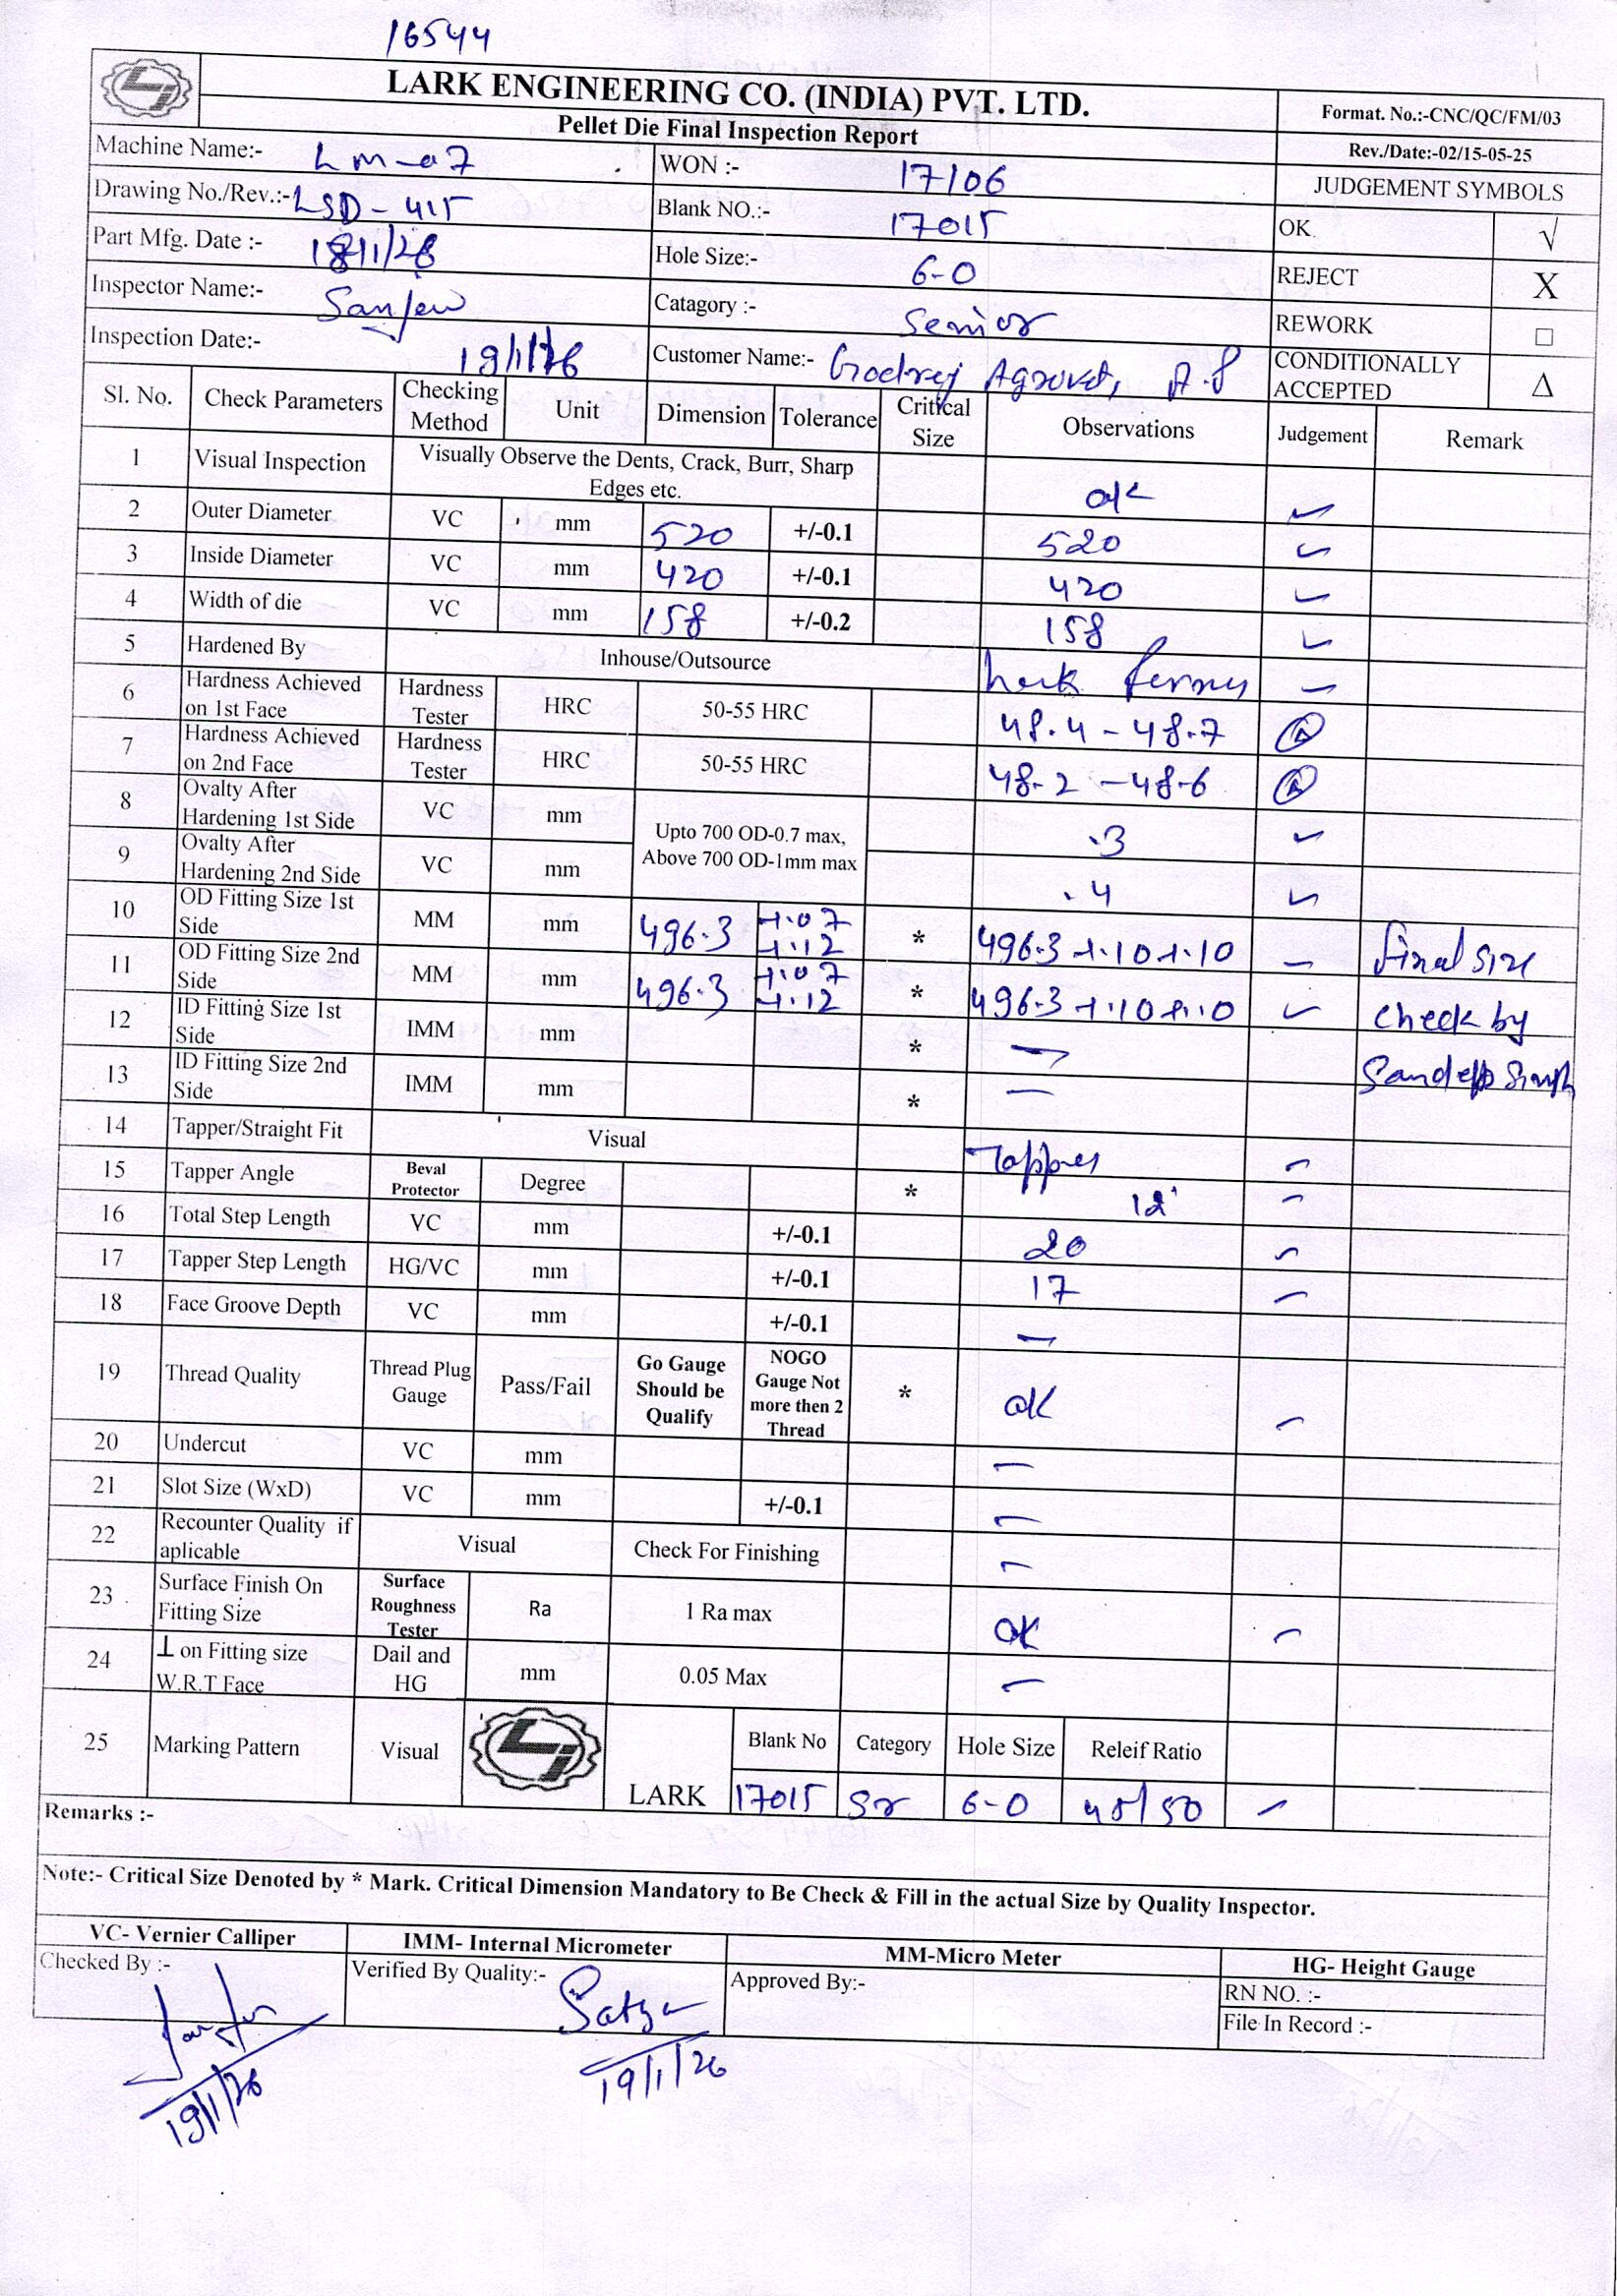 16544
LARK ENGINEERING CO. (INDIA) PVT. LTD.
Pellet Die Final Inspection Report
Format. No.:-CNC/QC/FM/03
Rev./Date:-02/15-05-25
Machine Name:- Lm-07 WON :- 17106 JUDGEMENT SYMBOLS
Drawing No./Rev.:- LSD-415 Blank NO.:- 17015 OK √
Part Mfg. Date :- Hole Size:- 6-0 REJECT X
Inspector Name:- Sanjeev Catagory :- Senior REWORK □
Inspection Date:- 19/1/26 Customer Name:- Godrej Agrovet, A.P CONDITIONALLY ACCEPTED Δ
Sl. No. Check Parameters Checking Method Unit Dimension Tolerance Critical Size Observations Judgement Remark
1 Visual Inspection Visually Observe the Dents, Crack, Burr, Sharp Edges etc. ok ✓
2 Outer Diameter VC mm 520 +/-0.1 520 ✓
3 Inside Diameter VC mm 420 +/-0.1 420 ✓
4 Width of die VC mm 158 +/-0.2 158 ✓
5 Hardened By Inhouse/Outsource ✓
6 Hardness Achieved on 1st Face Hardness Tester HRC 50-55 HRC 48.4 - 48.7
7 Hardness Achieved on 2nd Face Hardness Tester HRC 50-55 HRC 48.2 - 48.6
8 Ovalty After Hardening 1st Side VC mm Upto 700 OD-0.7 max, Above 700 OD-1mm max .3 ✓
9 Ovalty After Hardening 2nd Side VC mm .4 ✓
10 OD Fitting Size 1st Side MM mm 496.3 +.07 +.12 * 496.3 +.10 +.10 ✓ Final size
11 OD Fitting Size 2nd Side MM mm 496.3 +.07 +.12 * 496.3 +.10 +.10 ✓ check by
12 ID Fitting Size 1st Side IMM mm * — Sandeep Singh
13 ID Fitting Size 2nd Side IMM mm * —
14 Tapper/Straight Fit Visual Tapper ✓
15 Tapper Angle Beval Protector Degree * 12° ✓
16 Total Step Length VC mm +/-0.1 20 ✓
17 Tapper Step Length HG/VC mm +/-0.1 17 ✓
18 Face Groove Depth VC mm +/-0.1 —
19 Thread Quality Thread Plug Gauge Pass/Fail Go Gauge Should be Qualify NOGO Gauge Not more then 2 Thread * ok ✓
20 Undercut VC mm —
21 Slot Size (WxD) VC mm +/-0.1 —
22 Recounter Quality if aplicable Visual Check For Finishing —
23 Surface Finish On Fitting Size Surface Roughness Tester Ra 1 Ra max ok ✓
24 ⊥ on Fitting size W.R.T Face Dail and HG mm 0.05 Max —
25 Marking Pattern Visual LARK Blank No Category Hole Size Releif Ratio
17015 Sr 6-0 45/50 ✓
Remarks :-
Note:- Critical Size Denoted by * Mark. Critical Dimension Mandatory to Be Check & Fill in the actual Size by Quality Inspector.
VC- Vernier Calliper IMM- Internal Micrometer MM-Micro Meter HG- Height Gauge
Checked By :- Verified By Quality:- Satya Approved By:- RN NO. :-
File In Record :-
19/1/26 19/1/26